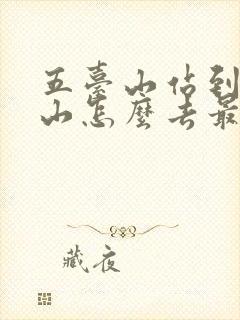 五臺山佔到
山怎麼去最
藏夜